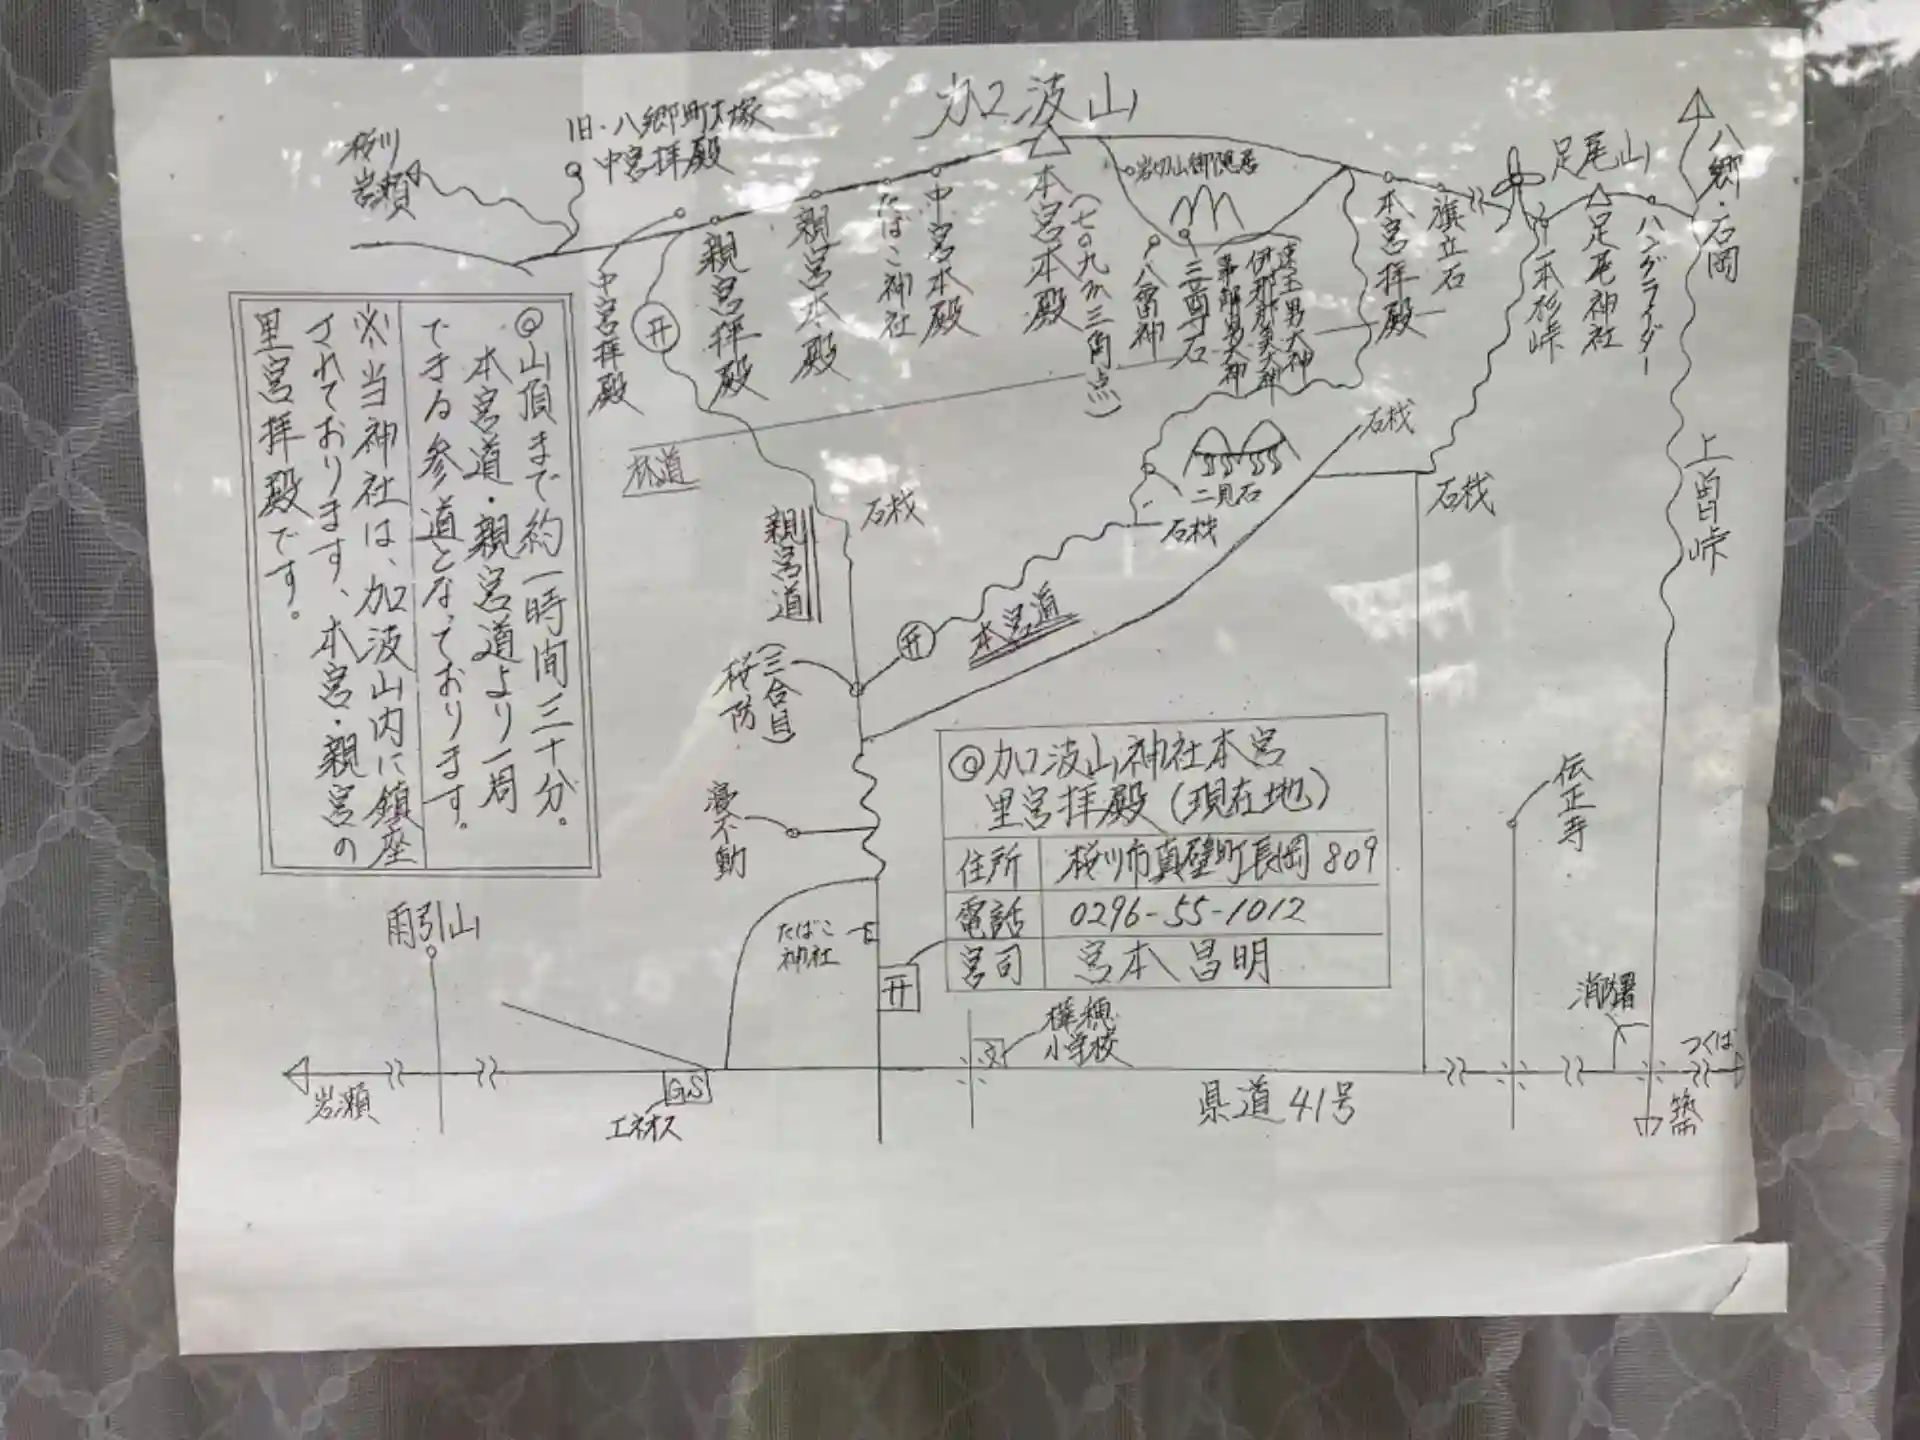 加波山
旧・八郷町大塚
中宮拝殿
桜川
岩瀬
中宮拝殿
親宮拝殿
親宮本殿
たばこ神社
中宮本殿
本宮本殿
(七〇九m三角点)
八雷神
三尊石
本宮拝殿
旗立石
一本杉峠
足尾山
足尾神社
ハングライダー
八郷・石岡
上曽峠
林道
二見石
石材
石材
石材
石材
親宮道
本宮道
桜防
(三合目)
不動
雨引山
たばこ
神社
◎山頂まで約一時間三十分。
本宮道・親宮道より一周
できる参道となっております。
※当神社は、加波山内に鎮座
されております、本宮・親宮の
里宮拝殿です。
◎加波山神社本宮
里宮拝殿(現在地)
住所 桜川市真壁町長岡809
電話 0296-55-1012
宮司 宮本昌明
樺穂
小学校
文
伝正寺
岩瀬
GS
エネオス
県道41号
つくば